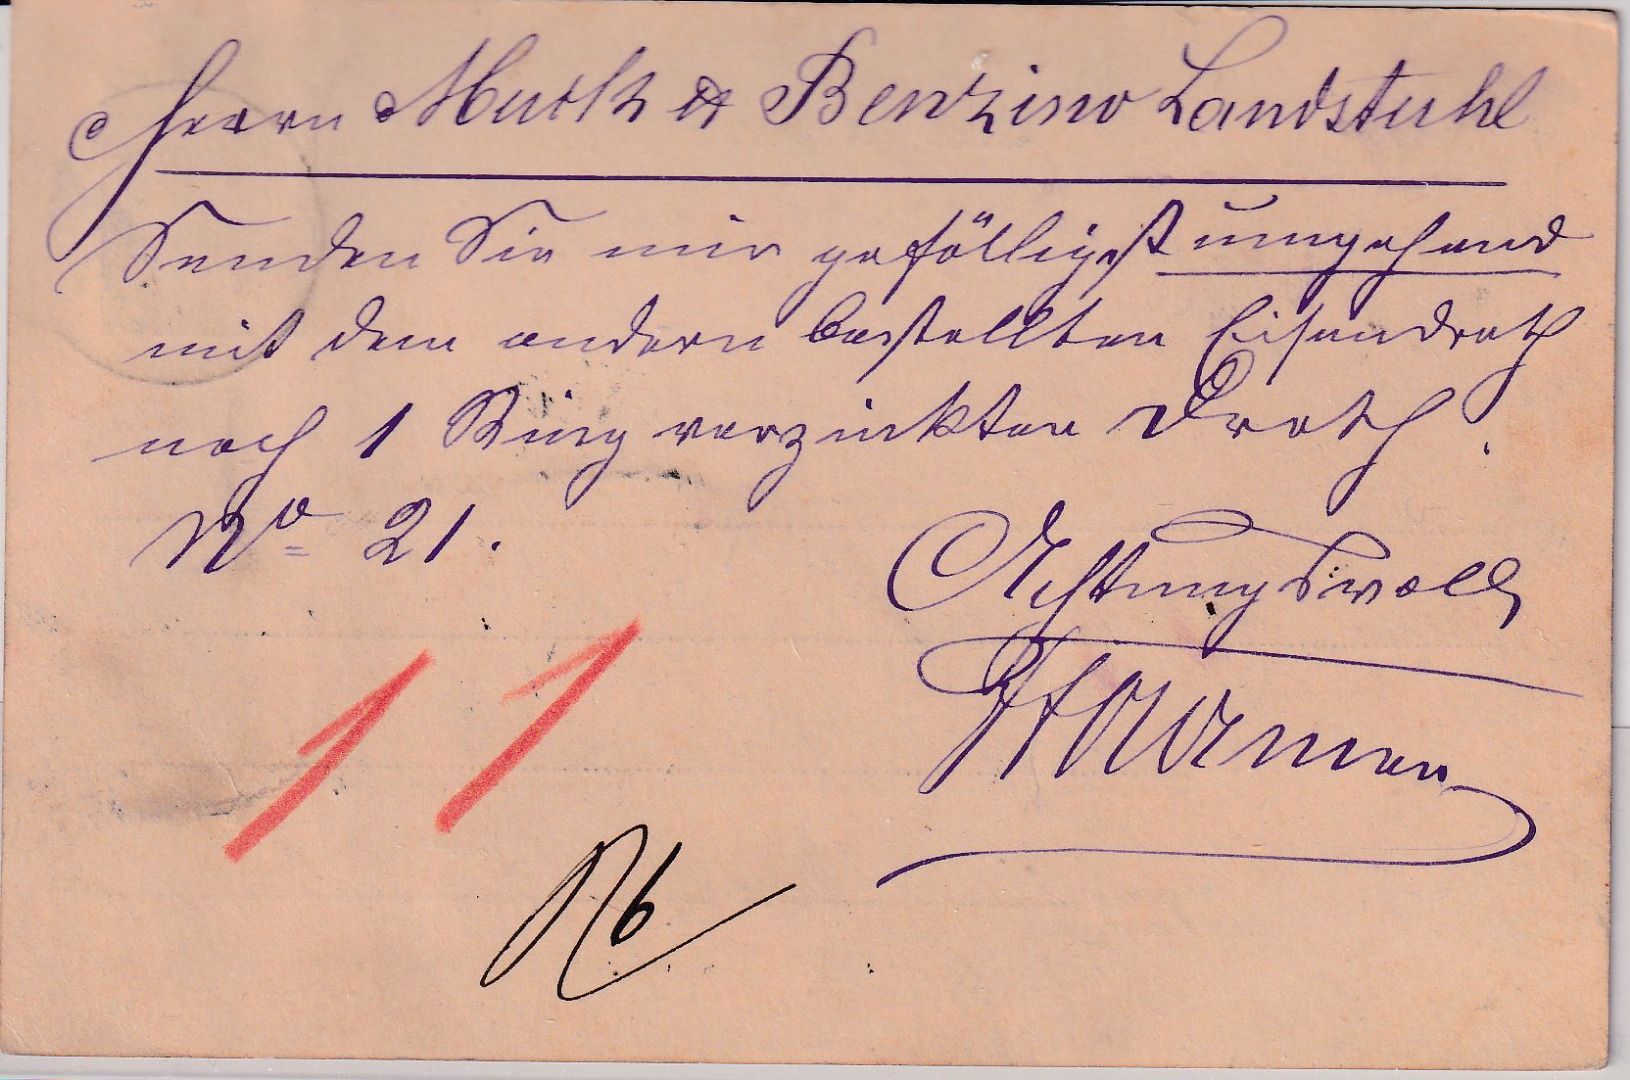 Herrn Muth & Benzino Landstuhl
Senden Sie mir gefälligst umgehend
mit dem andern bestellten Eisendrath
noch 1 Ring verzinkten Drath.
No 21.
Achtungsvoll
11